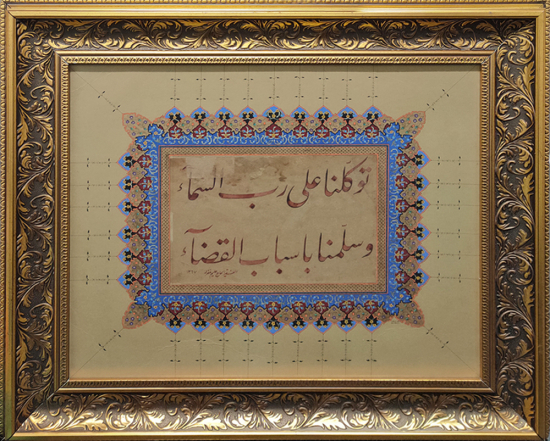 توکلنا علی رب السمآء
وسلمنا باسباب القضآء